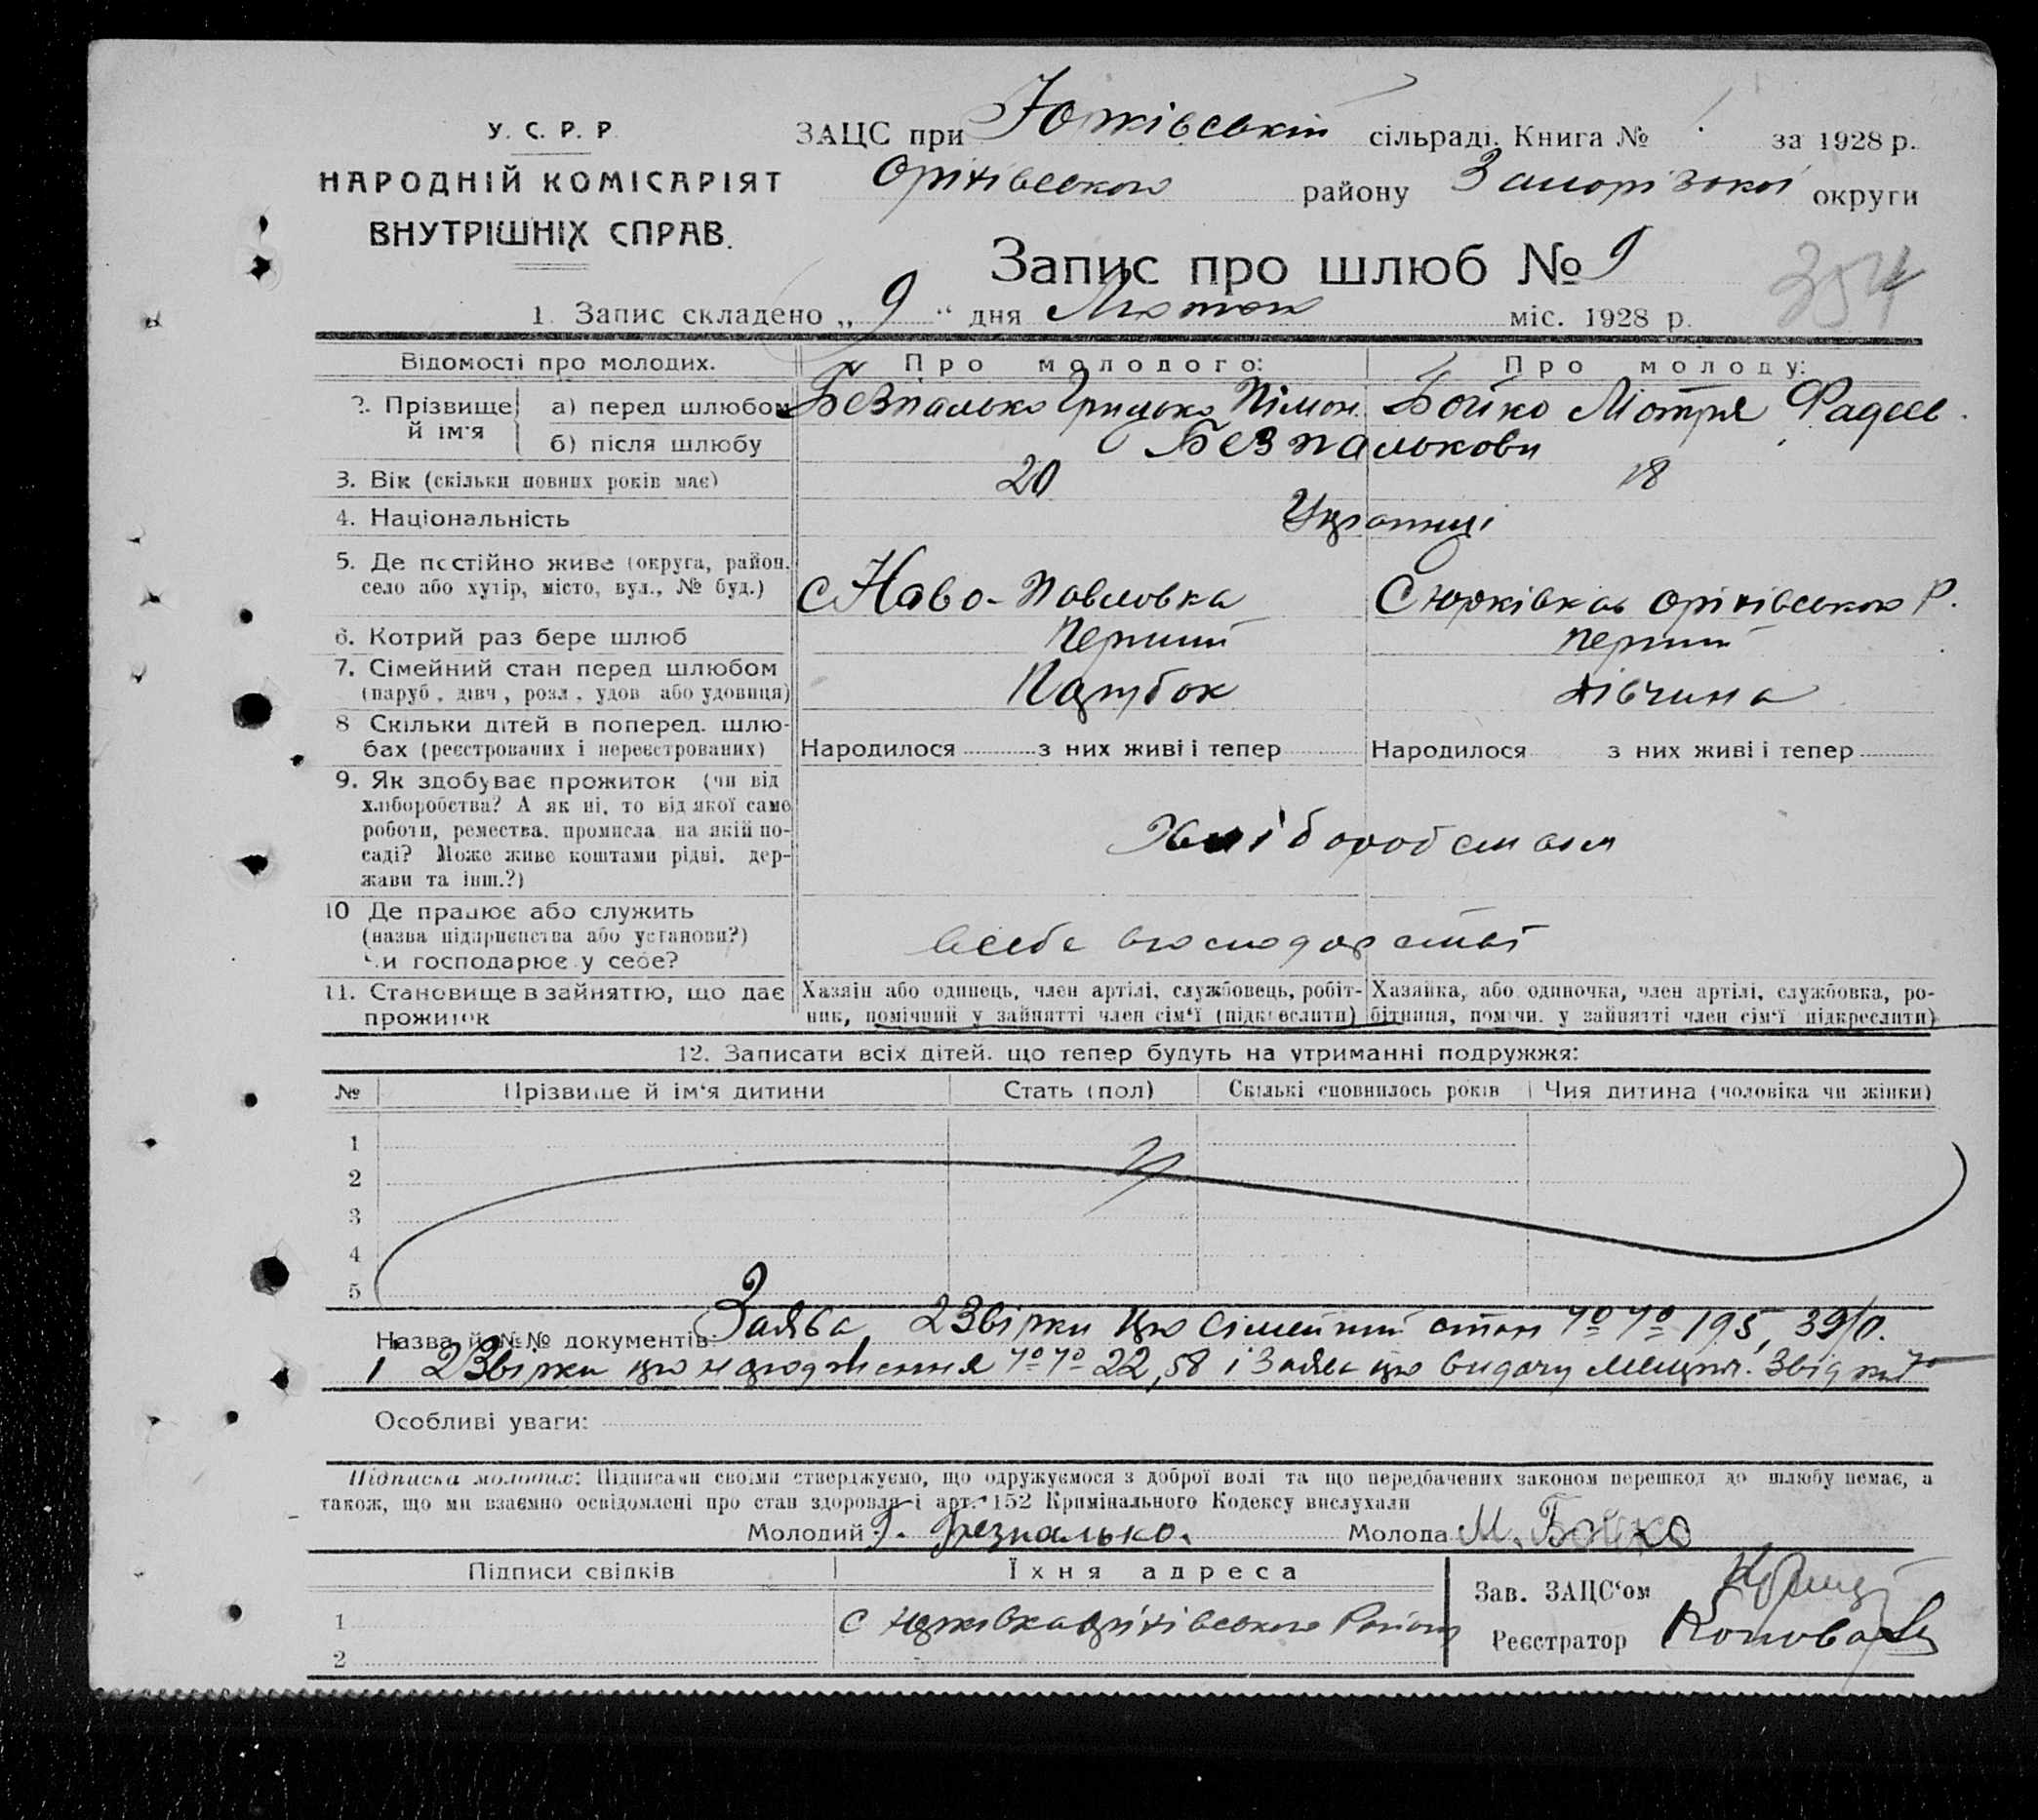 У. С. Р. Р.
НАРОДНІЙ КОМІСАРІЯТ
ВНУТРІШНІХ СПРАВ.
ЗАЦС при Юрківській сільраді. Книга № за 1928 р.
Оріхівського району Запорізької округи
Запис про шлюб № 9
354
1. Запис складено „ 9 “ дня Лютого міс. 1928 р.
Відомості про молодих.
Про молодого:
Про молоду:
2. Прізвище й ім'я
а) перед шлюбом
Безпалько Грицько Пімон.
Бойко Мотря Фадеев.
б) після шлюбу
Безпалькови
3. Вік (скільки повних років має)
20
18
4. Національність
Українці
5. Де постійно живе (округа, район,
село або хутір, місто, вул., № буд.)
С Ново-Павловка
С Юрківка Оріхівського Р.
6. Котрий раз бере шлюб
Перший
Перший
7. Сімейний стан перед шлюбом
(паруб., дівч., розл., удов. або удовиця)
Парубок
Дівчина
8 Скільки дітей в поперед. шлю-
бах (реєстрованих і нереєстрованих)
Народилося з них живі і тепер
Народилося з них живі і тепер
9. Як здобуває прожиток (чи від
хліборобства? А як ні, то від якої саме
роботи, ремества, промисла на якій по-
саді? Може живе коштами рідні, дер-
жави та інш.?)
Хліборобством
10 Де працює або служить
(назва підприємства або установи?)
чи господарює у себе?
в господарстві
11. Становище в зайняттю, що дає
прожиток
Хазяїн або одинець, член артілі, службовець, робіт-
ник, помічний у зайнятті член сім'ї (підкреслити)
Хазяйка, або одиночка, член артілі, службовка, ро-
бітниця, помічн. у зайнятті член сім'ї підкреслити)
12. Записати всіх дітей, що тепер будуть на утриманні подружжя:
№ Прізвище й ім'я дитини Стать (пол) Скількі сповнилось років Чия дитина (чоловіка чи жінки)
1
2
3
4
5
Назва й №№ документів: Заява, 2 Звірки про сімейний стан №№ 195, 39/0.
2 Звірки про народження №№ 22, 58 і Заява про видачу
Особливі уваги:
Підписка молодих: Підписами своїми стверджуємо, що одружуємося з доброї волі та що передбачених законом перешкод до шлюбу немає, а
також, що ми взаємно освідомлені про стан здоровля і арт. 152 Кримінального Кодексу вислухали
Молодий Г. Безпалько. Молода М. Бойко
Підписи свідків
Їхня адреса
1 С Юрківка Оріхівського Району
2
Зав. ЗАЦС'ом
Реєстратор